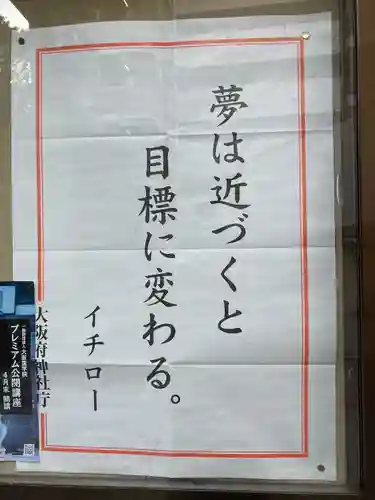 夢は近づくと
目標に変わる。
イチロー
大阪府神社庁
プレミアム公開講座
4月末 開講